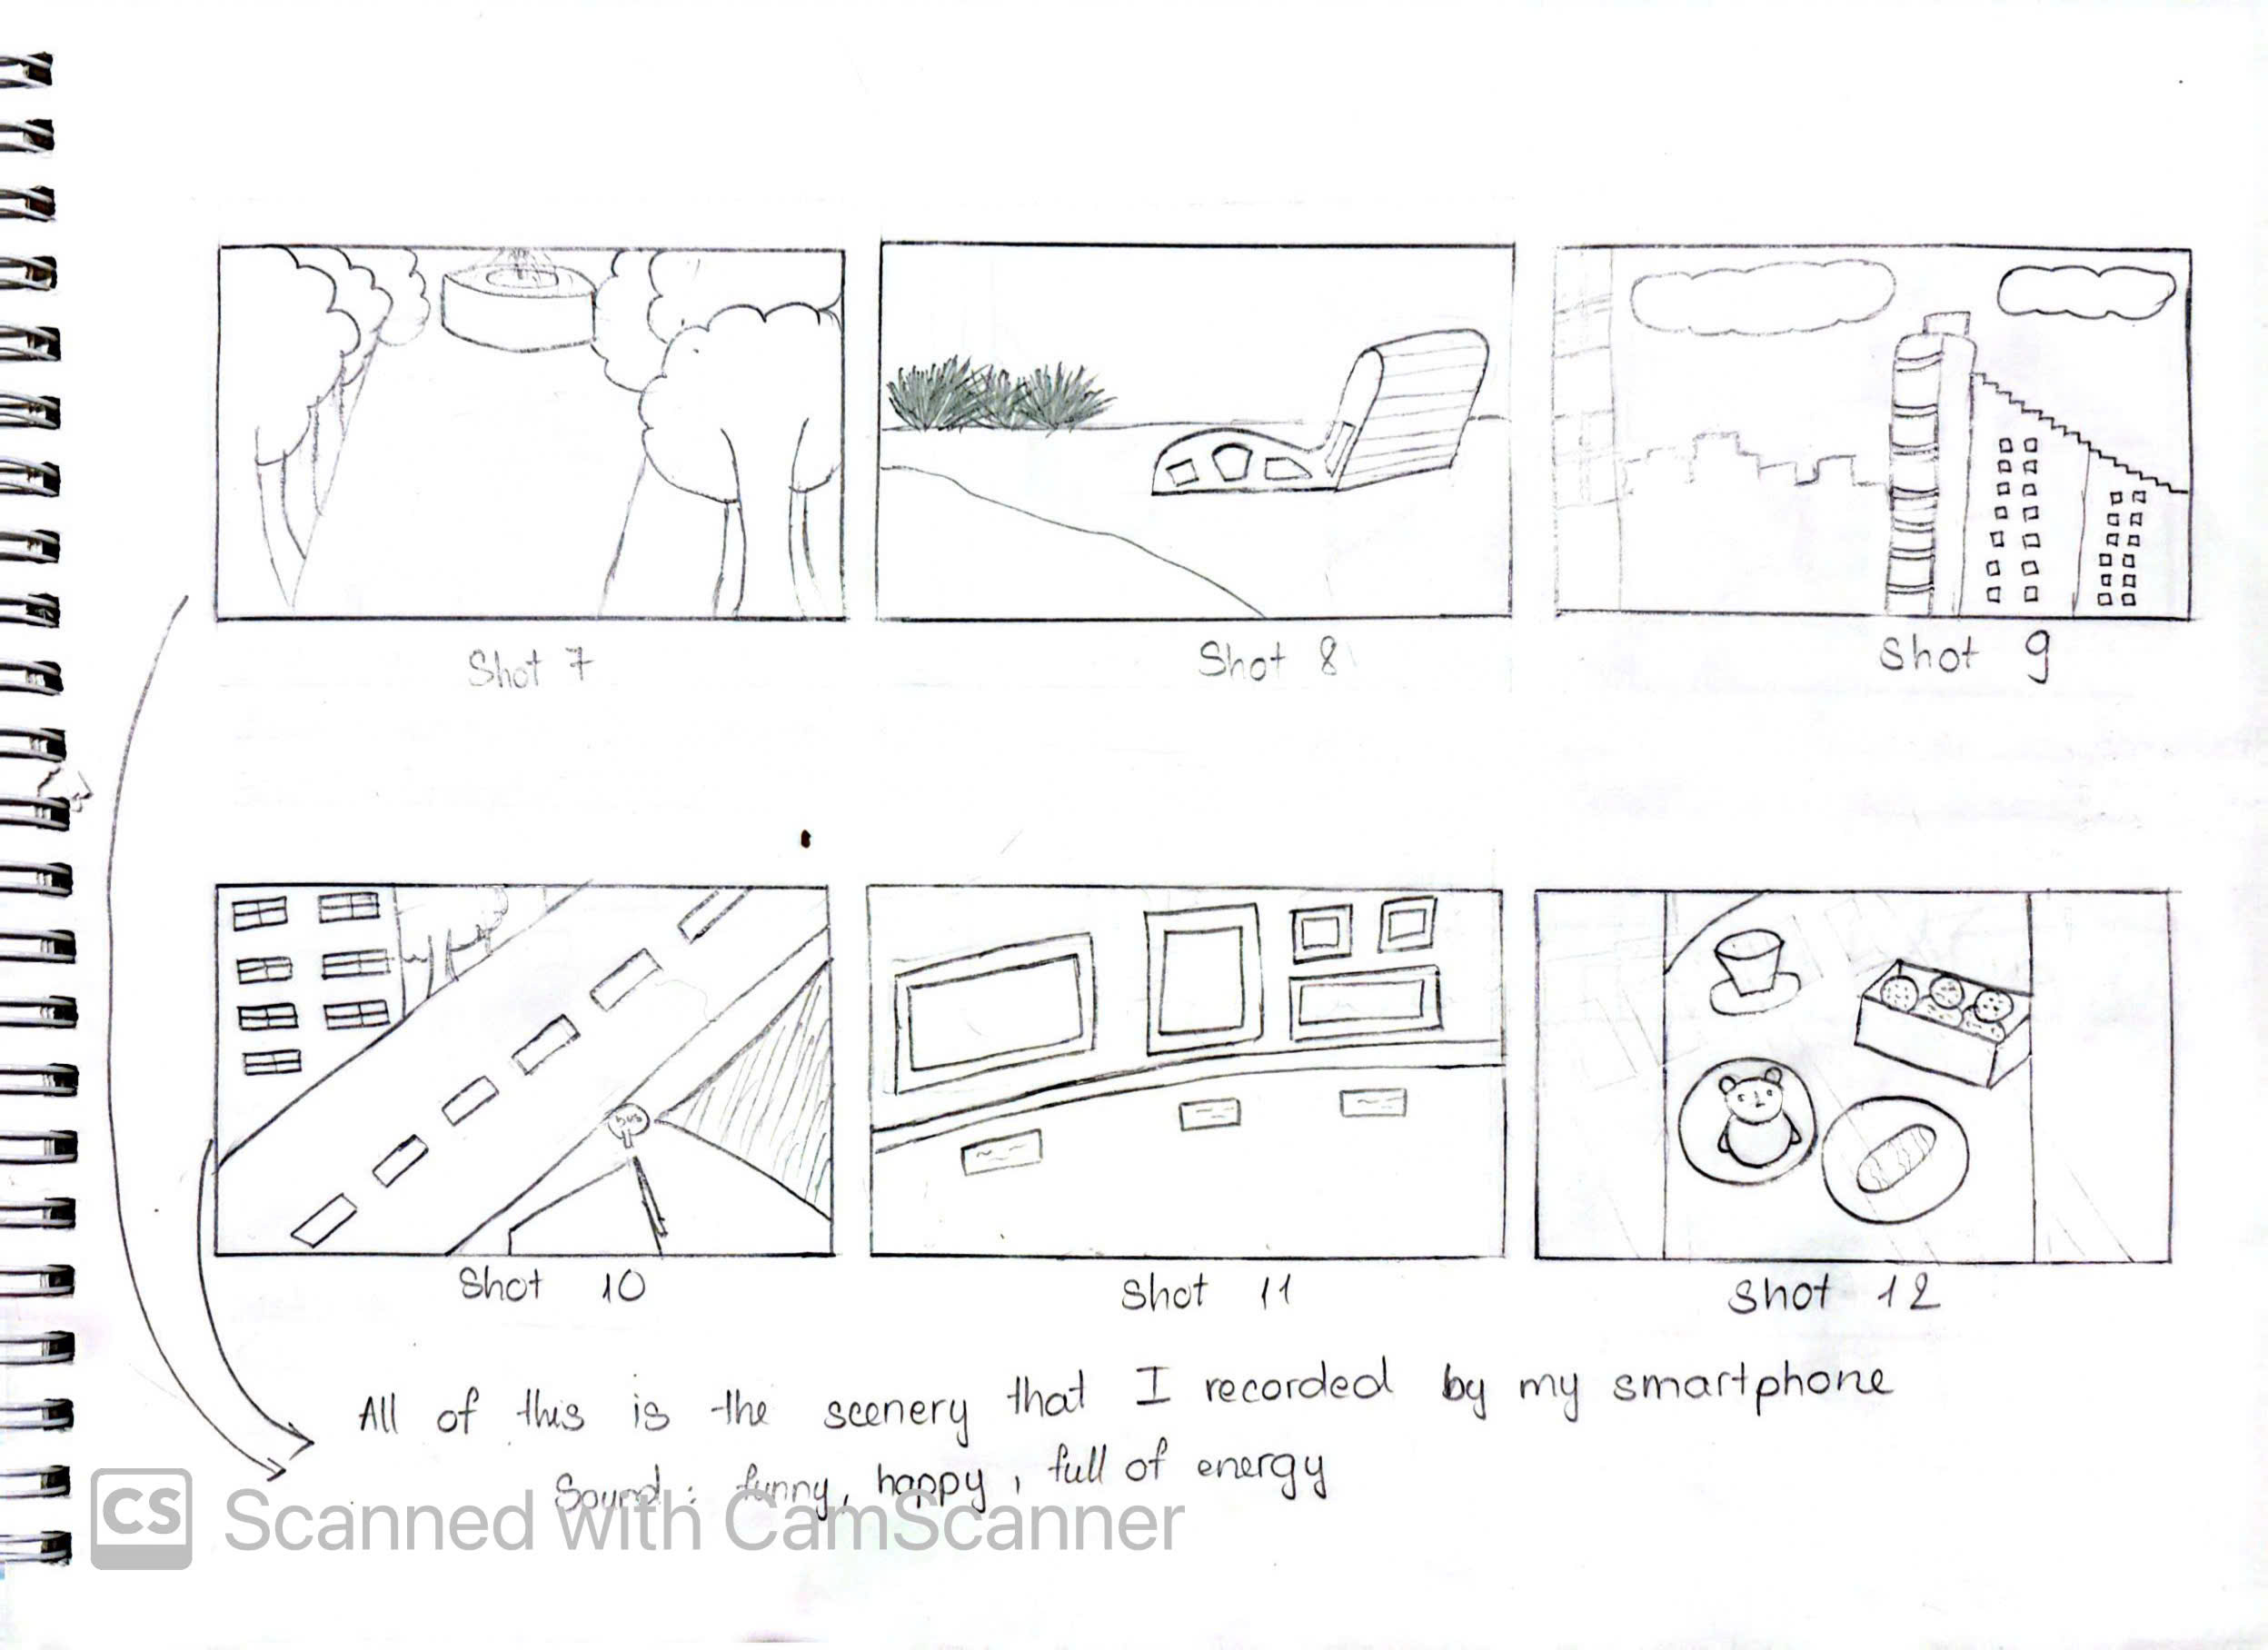 Shot 7
Shot 8
Shot 9
bus
Shot 10
Shot 11
Shot 12
All of this is the scenery that I recorded by my smartphone
Sound : funny, happy, full of energy
CS Scanned with CamScanner